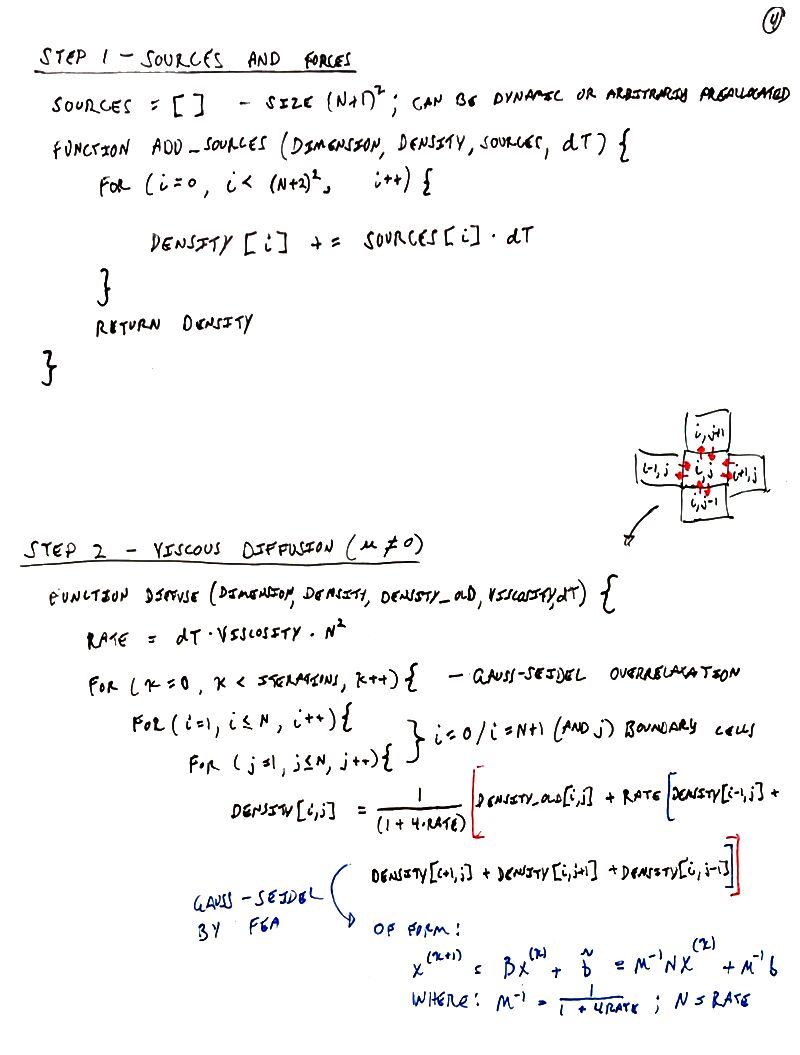 4
STEP 1 - SOURCES AND FORCES
SOURCES = [ ] - SIZE (N+1)²; CAN BE DYNAMIC OR ARBITRARILY PREALLOCATED
FUNCTION ADD_SOURCES (DIMENSION, DENSITY, SOURCES, dT) {
FOR (i=0, i < (N+2)², i++) {
DENSITY [i] += SOURCES[i] · dT
}
RETURN DENSITY
}
i, j+1
i-1, j i, j i+1, j
i, j-1
STEP 2 - VISCOUS DIFFUSION (μ ≠ 0)
FUNCTION DIFFUSE (DIMENSION, DENSITY, DENSITY_OLD, VISCOSITY, dT) {
RATE = dT · VISCOSITY · N²
FOR (K=0, K < ITERATIONS, K++) { - GAUSS-SEIDEL OVERRELAXATION
FOR (i=1, i≤N, i++) {
} i=0 / i=N+1 (AND j) BOUNDARY CELLS
FOR (j=1, j≤N, j++) {
DENSITY[i,j] = 1/(1+4·RATE) [DENSITY_OLD[i,j] + RATE [DENSITY[i-1,j] +
DENSITY[i+1,j] + DENSITY[i,j+1] + DENSITY[i,j-1]]]
GAUSS-SEIDEL
BY FEA
OF FORM:
x^(K+1) = Bx^(K) + b̃ = M⁻¹Nx^(K) + M⁻¹b
WHERE: M⁻¹ = 1/(1+4RATE) ; N = RATE